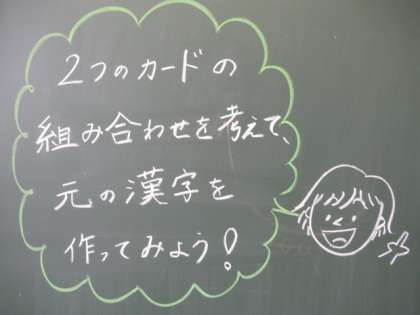 2つのカードの
組み合わせを考えて、
元の漢字を
作ってみよう!